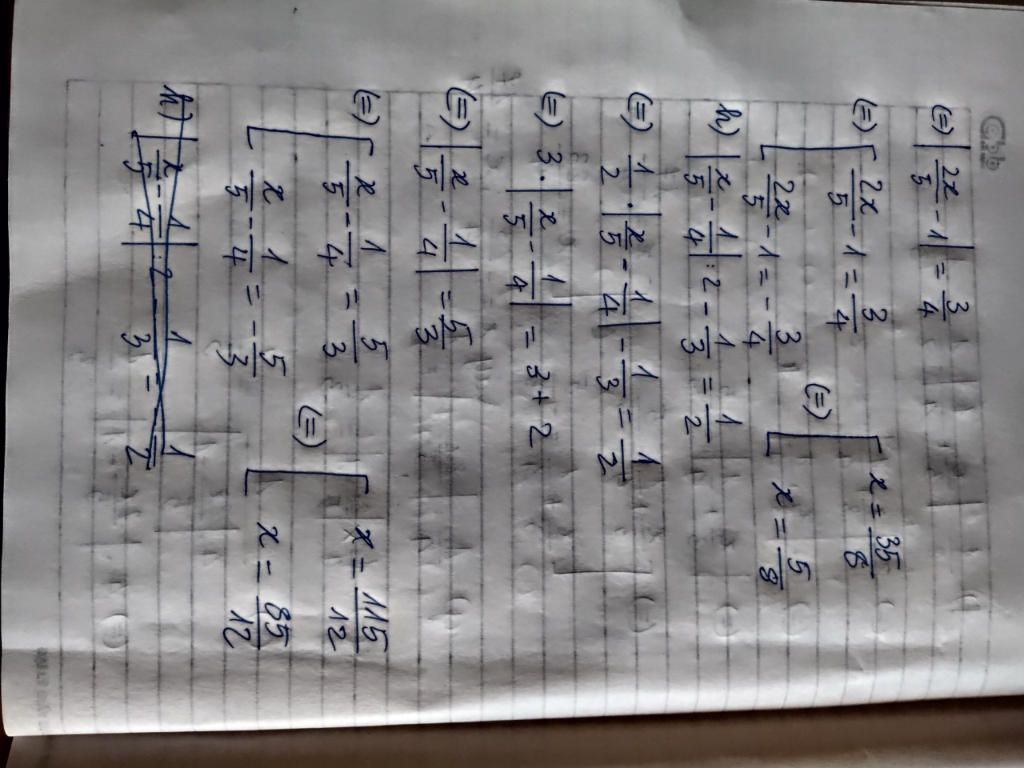 (=) |2x/5 - 1| = 3/4
(=) [ 2x/5 - 1 = 3/4 (=) [ x = 35/8
2x/5 - 1 = -3/4 x = 5/8
h) |x/5 - 1/4| : 2 - 1/3 = 1/2
(=) 1/2 · |x/5 - 1/4| - 1/3 = 1/2
(=) 3 · |x/5 - 1/4| = 3 + 2
(=) |x/5 - 1/4| = 5/3
(=) [ x/5 - 1/4 = 5/3 (=) [ x = 115/12
x/5 - 1/4 = -5/3 x = 85/12
h) |x/5 - 1/4| : 2 - 1/3 = 1/2